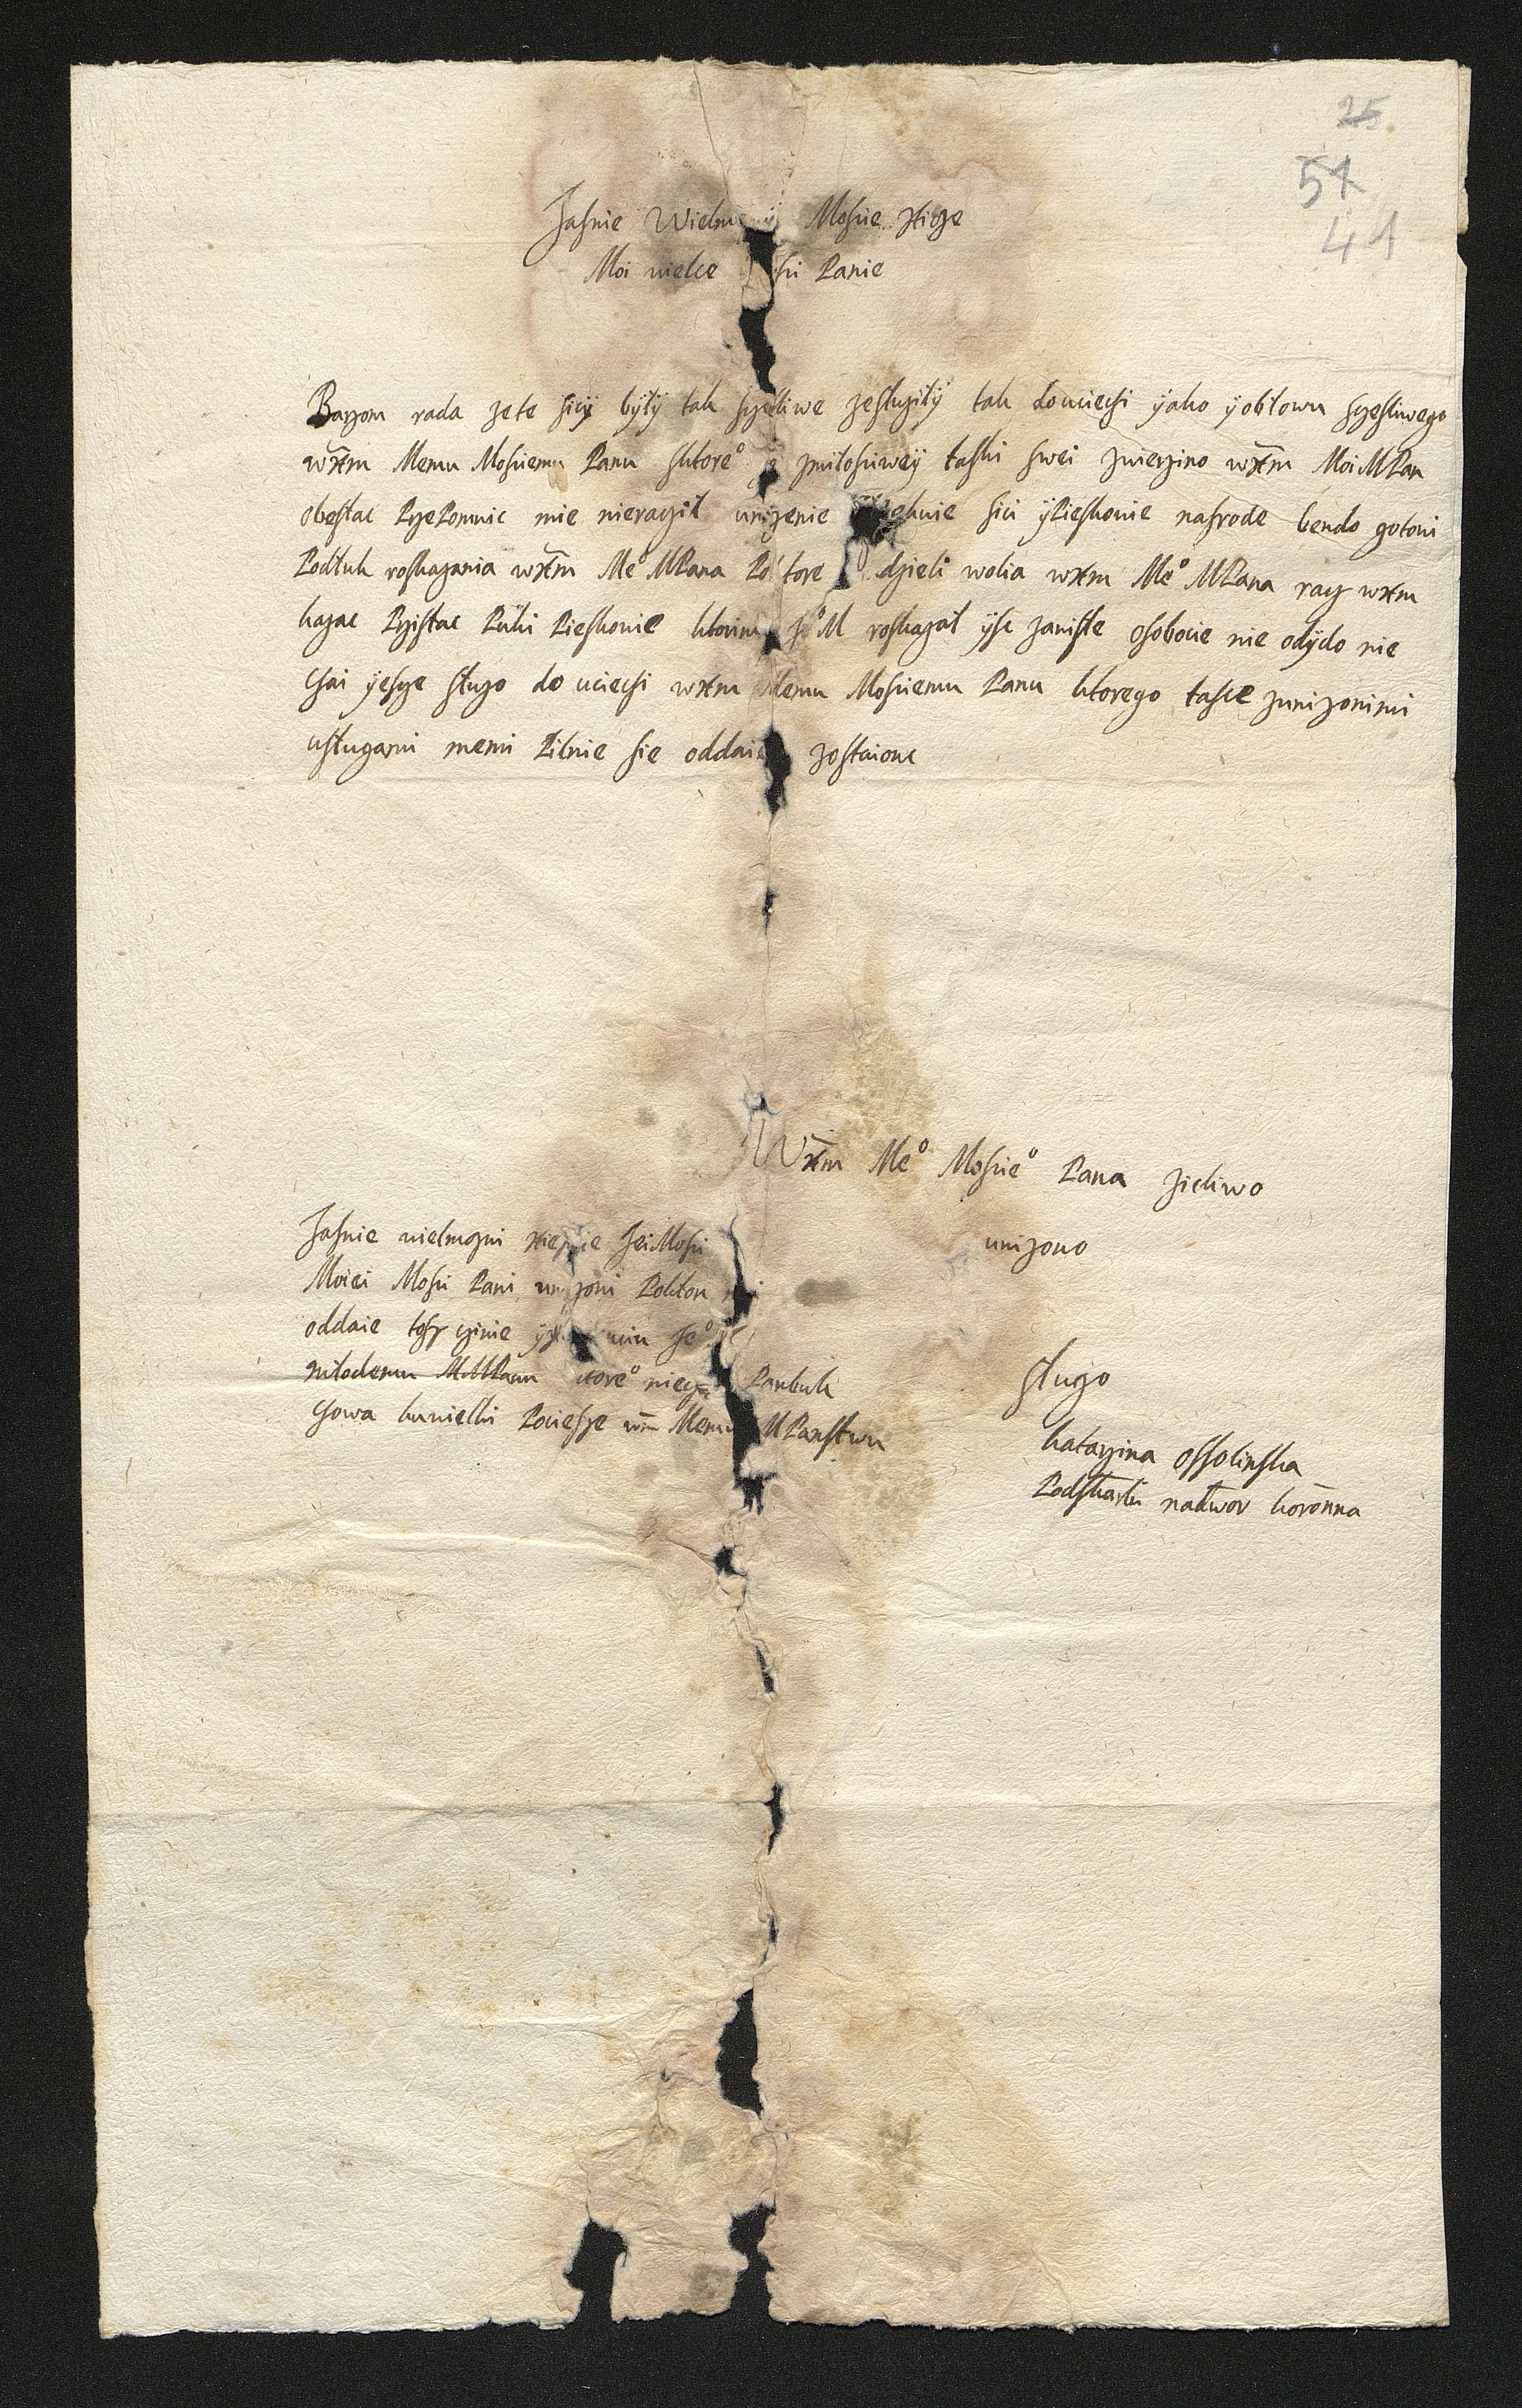 25
57
41
Jasnie Wielm Mosue xiąze
Moi wielce Panie
Barzom rada ze te sicÿ bÿłÿ tak sczesliwe ze słuzÿłÿ tak do uciechi ÿako ÿ obłowu sczesliwego
wxm Memu Mosuiemu Panu sktore° z miłosuiweÿ łaski swei zwierzino wxm Moi MPan
obesłac PrzePomnic mie nieracził unizenie sici ÿ Pieskowie nasrode bendo gotowi
Podłuk roskazania wxm Me° MPana dzieli wolia wxm Me° MPana racz wxm
kazac Przisłac Puki Pieskowie ktorim J°M roskazał ÿsc zawiste osobocie nie odÿdo nie
chai ÿesze słuzo do uciechi wxm Memu Mosuiemu Panu ktorego łasce zunizonimi
usługami memi Pilnie sie oddaie zostaionc
Wxm Me° Mosuie° Pana zicliwo
unizono
słuzo
Katarzina Ossolinska
Podskarbi nadwor koronna
Jasnie wielmozni xiezne JeiMosu
Moiei Mosu Pani unizoni Pokłon
oddaie tosz czinie Je°
młodemu MMPanu ktore° niech Panbuk
chowa kuwielki Pociesze wm Memu MPanstwu